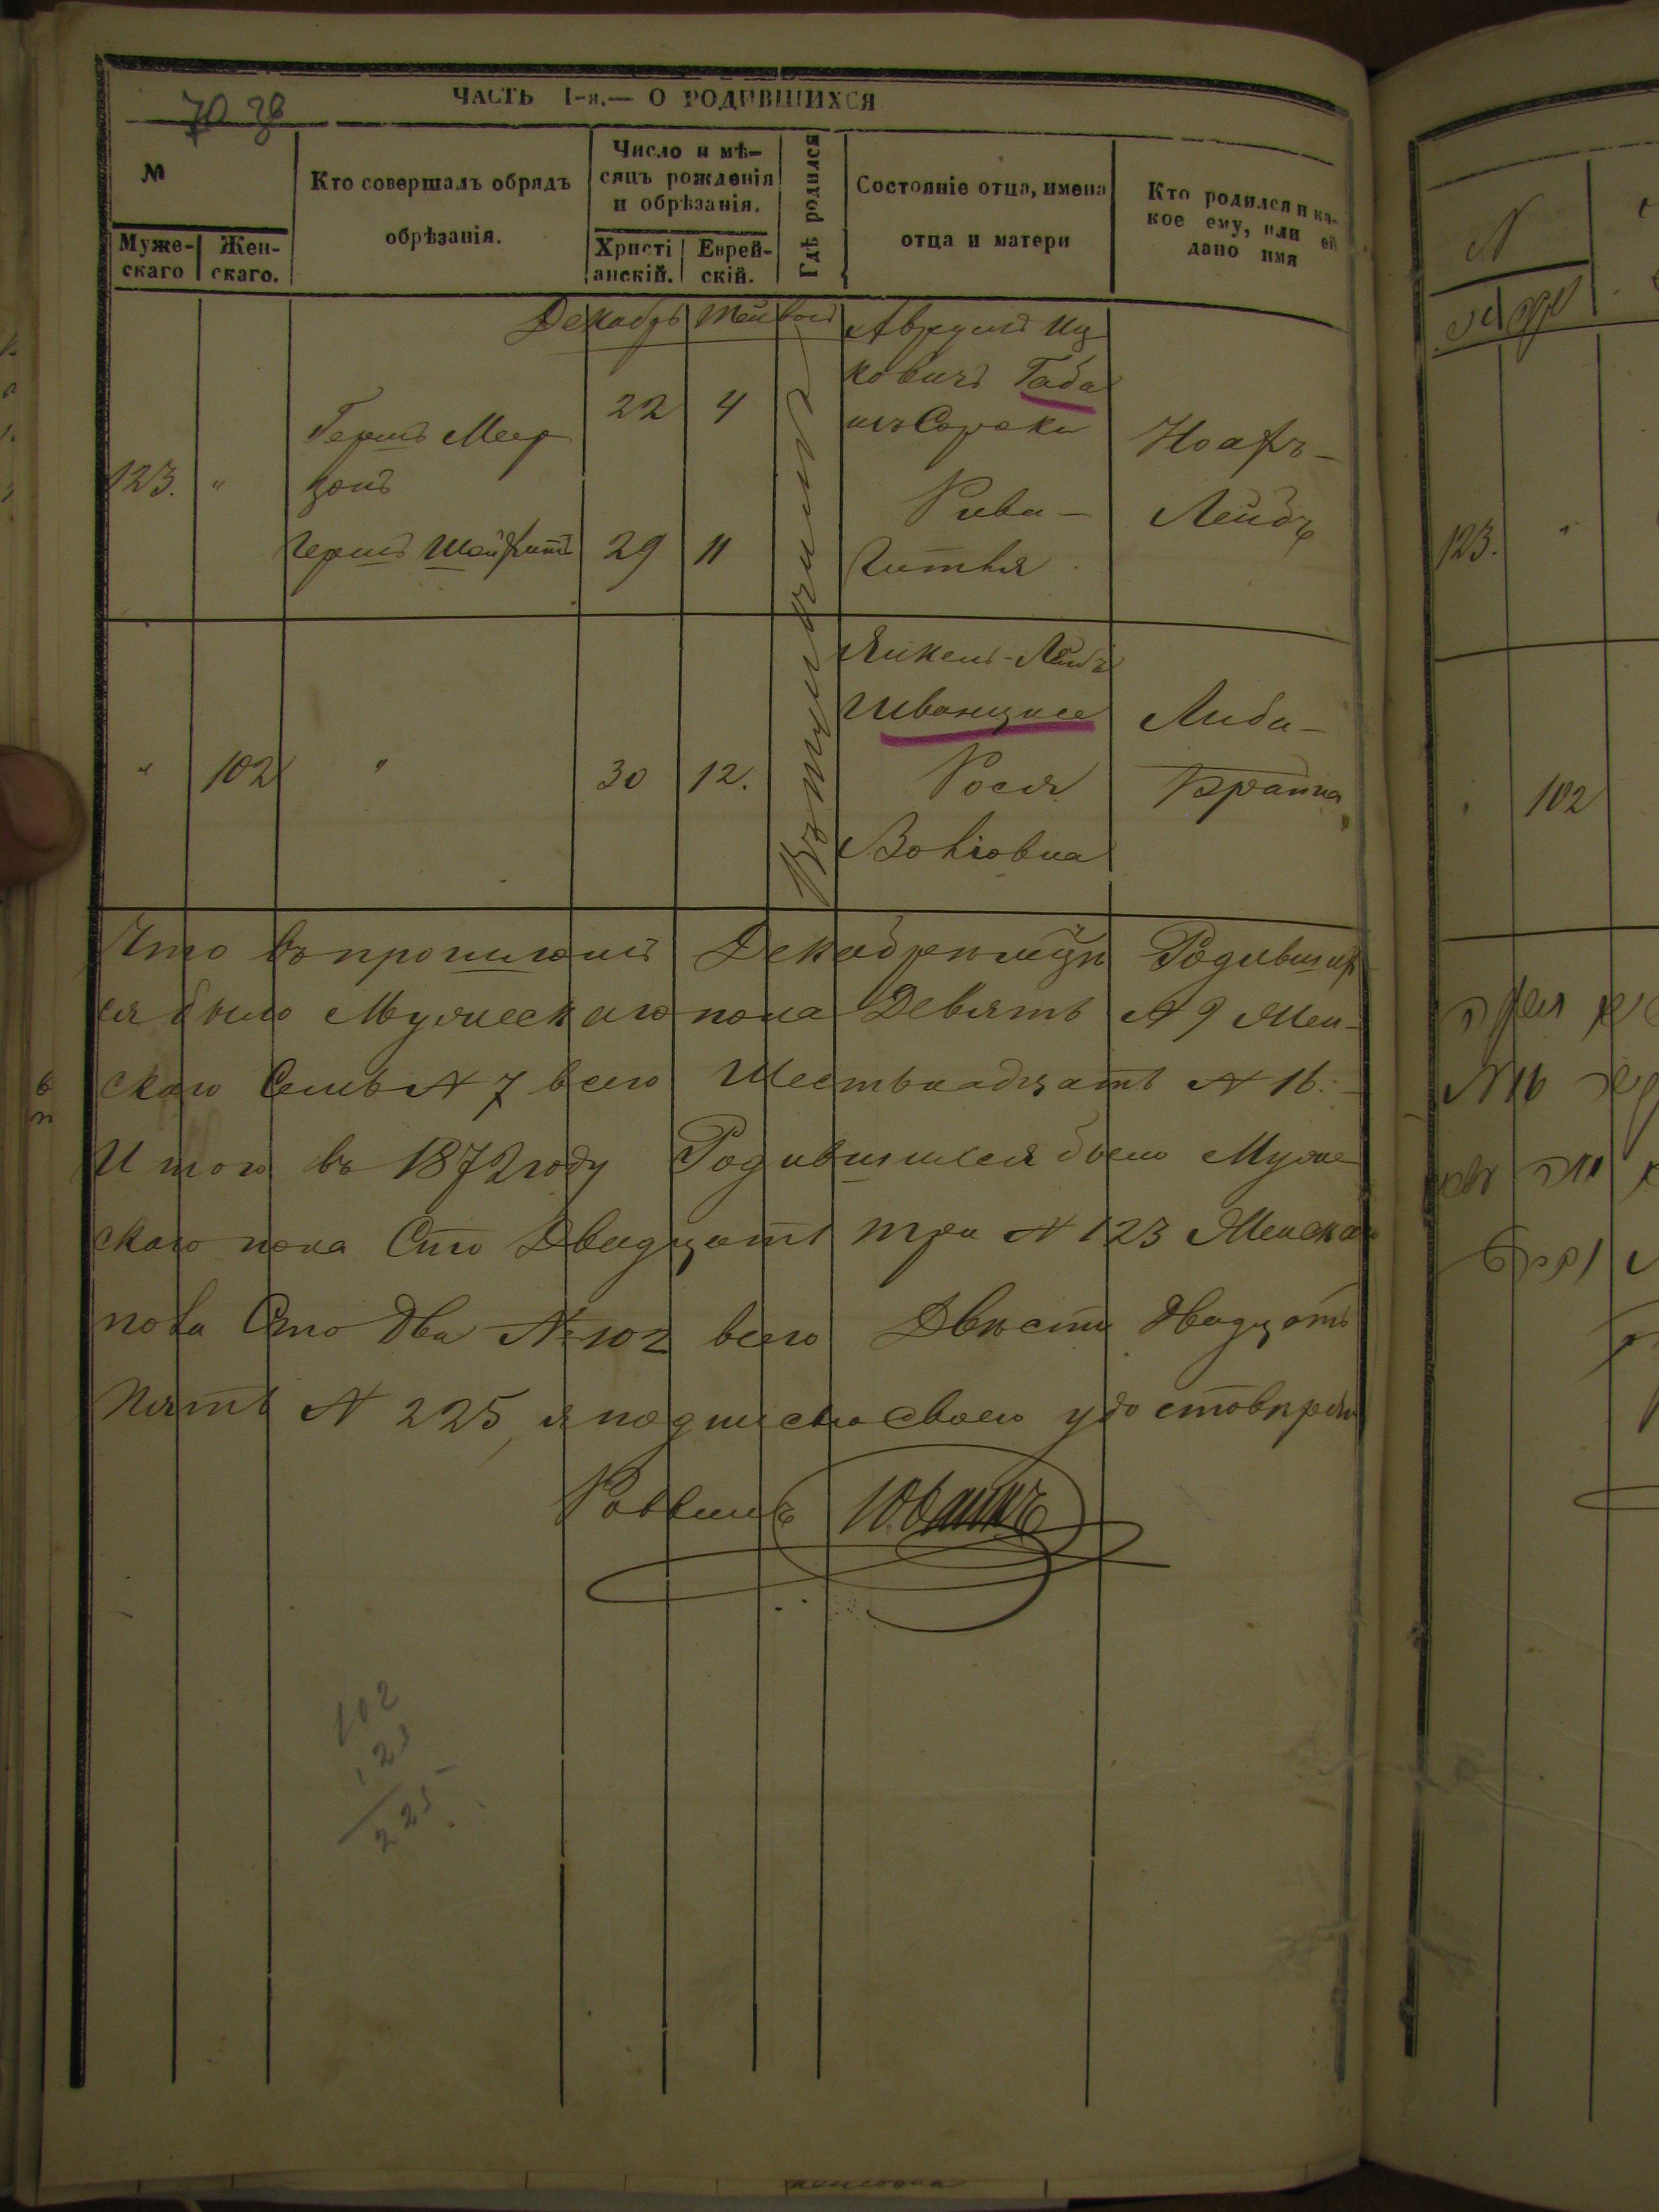 70 38
ЧАСТЬ I-я.— О РОДИВШИХСЯ
№
Муже-
скаго
Жен-
скаго.
Кто совершалъ обрядъ
обрѣзанія.
Число и мѣ-
сяцъ рожденія
и обрѣзанія.
Христі
анскій.
Еврей-
скій.
Гдѣ родился
Состояніе отца, имена
отца и матери
Кто родился и ка-
кое ему, или ей
дано имя
Декабрь Тейвесъ
123. "
Гершъ Меер
зонъ
Гершъ
22 4
29 11
Аврумъ Иц
ковичъ Габа
изъ Сороки
Рива –
Гитля
Ноахъ –
Лейбъ
" 102 "
30 12.
Янкель-Лейбъ
Рося
Либа –
Брайна
Что въ прошломъ Декабрѣ м-цѣ Родивших
ся было Мужескаго пола Девять № 9 Жен-
скаго Семь № 7 всего Шестьнадцать № 16. –
Итого въ 1872 году Родившихся было Муже
скаго пола Сто Двадцать три № 123 Женскаго
пола Сто Два № 102 всего Двѣсти Двадцать
Пять № 225, я подписью своею удостовѣряю
Раввинъ
102
123
225
№
123. "
" 102